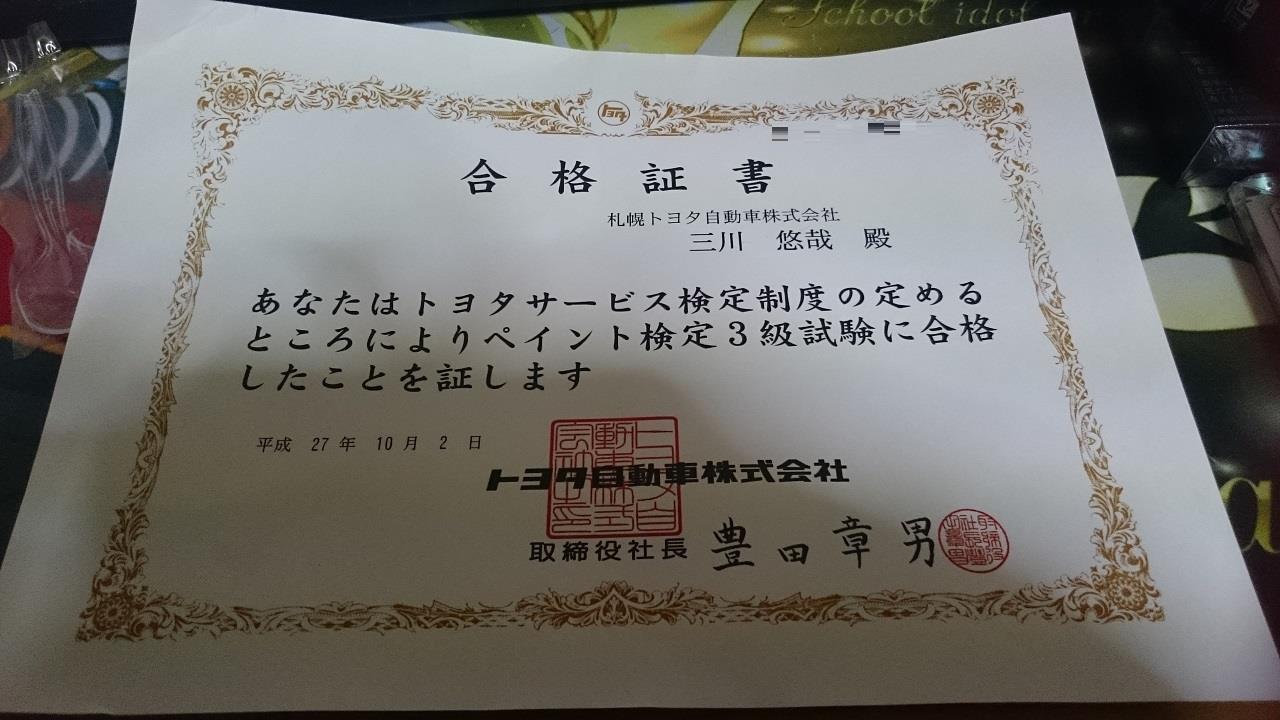 School idol
トヨタ
合格証書
札幌トヨタ自動車株式会社
三川 悠哉 殿
あなたはトヨタサービス検定制度の定める
ところによりペイント検定3級試験に合格
したことを証します
平成 27年 10月 2日
トヨタ自動車株式会社
取締役社長 豊田章男